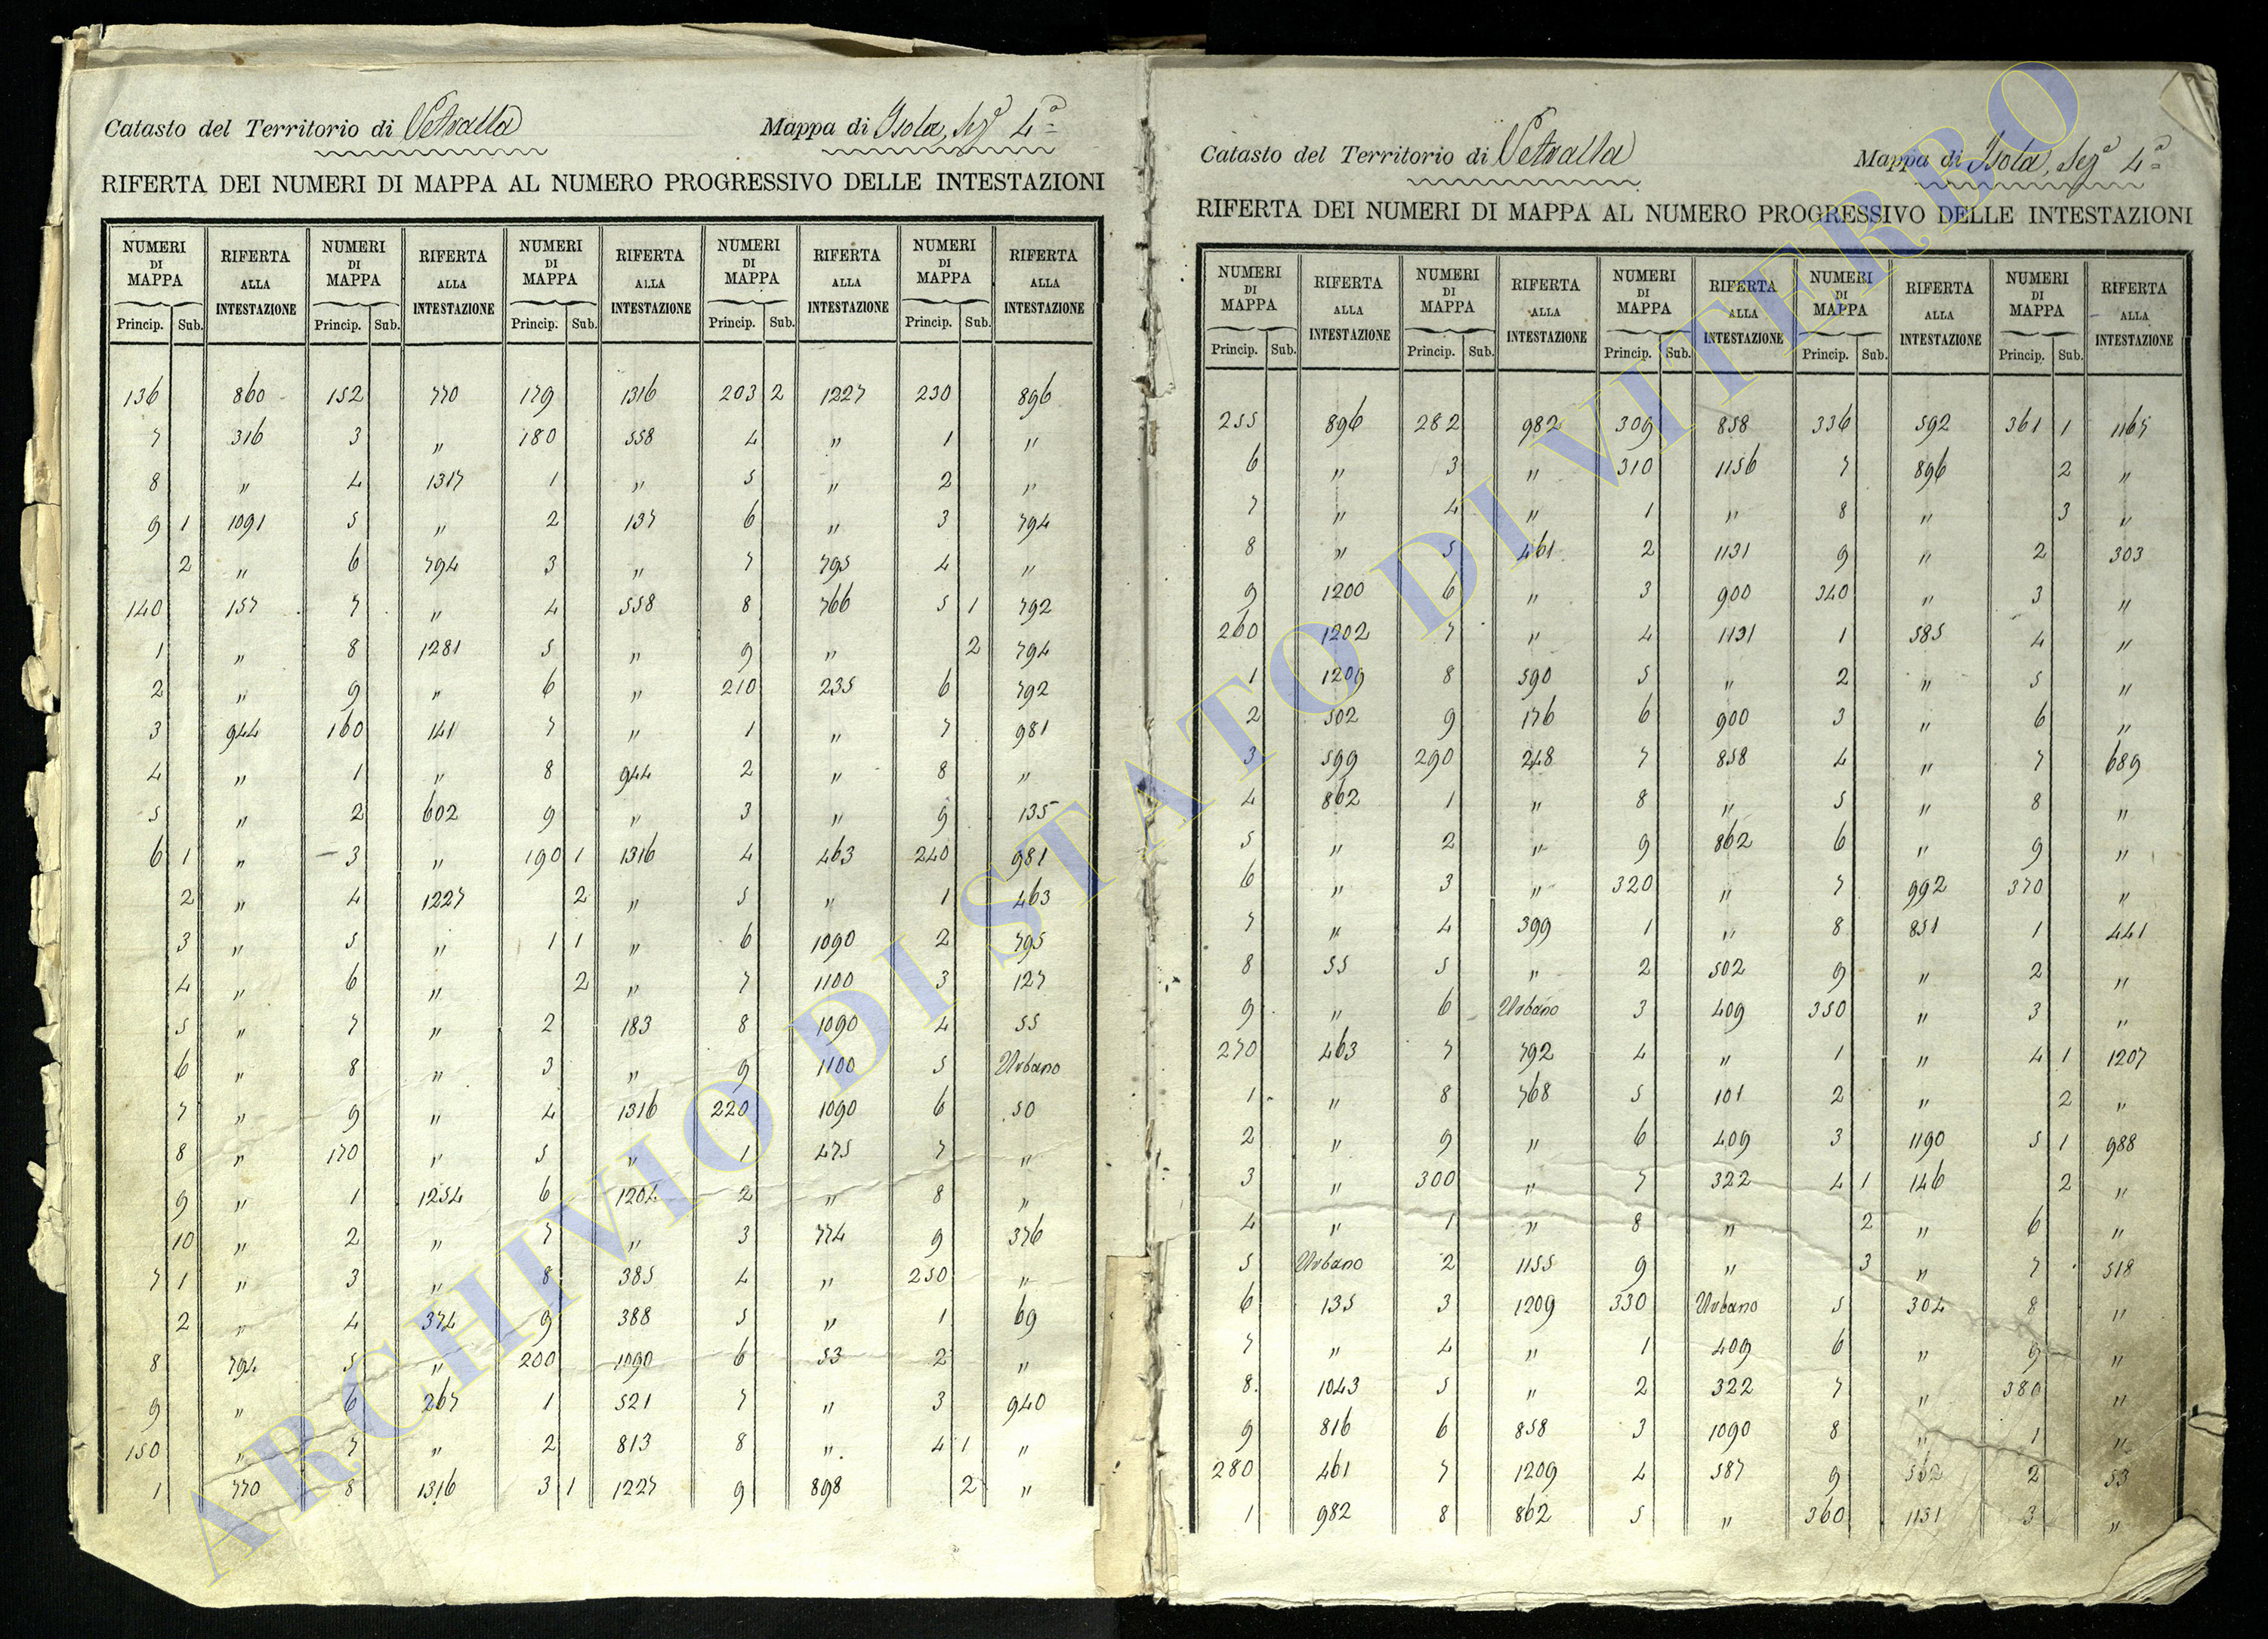 Catasto del Territorio di Vetralla Mappa di Isola, Sezª 4ª
RIFERTA DEI NUMERI DI MAPPA AL NUMERO PROGRESSIVO DELLE INTESTAZIONI
NUMERI DI MAPPA RIFERTA ALLA INTESTAZIONE NUMERI DI MAPPA RIFERTA ALLA INTESTAZIONE NUMERI DI MAPPA RIFERTA ALLA INTESTAZIONE NUMERI DI MAPPA RIFERTA ALLA INTESTAZIONE NUMERI DI MAPPA RIFERTA ALLA INTESTAZIONE
Princip. Sub. Princip. Sub. Princip. Sub. Princip. Sub. Princip. Sub.
136 860 152 770 179 1316 203 2 1227 230 896
7 316 3 " 180 558 4 " 1 "
8 " 4 1317 1 " 5 " 2 "
9 1 1091 5 " 2 137 6 " 3 794
2 " 6 794 3 " 7 795 4 "
140 157 7 " 4 558 8 766 5 1 792
1 " 8 1281 5 " 9 " 2 794
2 " 9 " 6 " 210 235 6 792
3 944 160 141 7 " 1 " 7 981
4 " 1 " 8 944 2 " 8 "
5 " 2 602 9 " 3 " 9 135
6 1 " 3 " 190 1 1316 4 463 240 981
2 " 4 1227 2 " 5 " 1 463
3 " 5 " 1 1 " 6 1090 2 795
4 " 6 " 2 " 7 1100 3 127
5 " 7 " 2 183 8 1090 4 55
6 " 8 " 3 " 9 1100 5 Urbano
7 " 9 " 4 1316 220 1090 6 50
8 " 170 " 5 " 1 475 7 "
9 " 1 1254 6 1204 2 " 8 "
10 " 2 " 7 " 3 774 9 376
7 1 " 3 " 8 385 4 " 250 "
2 " 4 374 9 388 5 " 1 69
8 794 5 " 200 1090 6 53 2 "
9 " 6 267 1 521 7 " 3 940
150 " 7 " 2 813 8 " 4 1 "
1 770 8 1316 3 1 1227 9 898 2 "
Catasto del Territorio di Vetralla Mappa di Isola, Sezª 4ª
RIFERTA DEI NUMERI DI MAPPA AL NUMERO PROGRESSIVO DELLE INTESTAZIONI
NUMERI DI MAPPA RIFERTA ALLA INTESTAZIONE NUMERI DI MAPPA RIFERTA ALLA INTESTAZIONE NUMERI DI MAPPA RIFERTA ALLA INTESTAZIONE NUMERI DI MAPPA RIFERTA ALLA INTESTAZIONE NUMERI DI MAPPA RIFERTA ALLA INTESTAZIONE
Princip. Sub. Princip. Sub. Princip. Sub. Princip. Sub. Princip. Sub.
255 896 282 982 309 858 336 592 361 1 1167
6 " 3 " 310 1156 7 896 2 "
7 " 4 " 1 " 8 " 3 "
8 " 5 461 2 1131 9 " 2 303
9 1200 6 " 3 900 340 " 3 "
260 1202 7 " 4 1131 1 585 4 "
1 1209 8 590 5 " 2 " 5 "
2 502 9 176 6 900 3 " 6 "
3 599 290 248 7 858 4 " 7 689
4 862 1 " 8 " 5 " 8 "
5 " 2 " 9 862 6 " 9 "
6 " 3 " 320 " 7 992 370 "
7 " 4 399 1 " 8 851 1 441
8 55 5 " 2 502 9 " 2 "
9 " 6 Urbano 3 409 350 " 3 "
270 463 7 792 4 " 1 " 4 1 1207
1 " 8 768 5 101 2 " 2 "
2 " 9 " 6 409 3 1190 5 1 988
3 " 300 " 7 322 4 1 146 2 "
4 " 1 " 8 " 2 " 6 "
5 Urbano 2 1155 9 " 3 " 7 518
6 135 3 1209 330 Urbano 5 304 8 "
7 " 4 " 1 409 6 " 9 "
8 1043 5 " 2 322 7 " 380 "
9 816 6 858 3 1090 8 " 1 "
280 461 7 1209 4 587 9 562 2 53
1 982 8 862 5 " 360 1131 3 "
ARCHIVIO DI STATO DI VITERBO